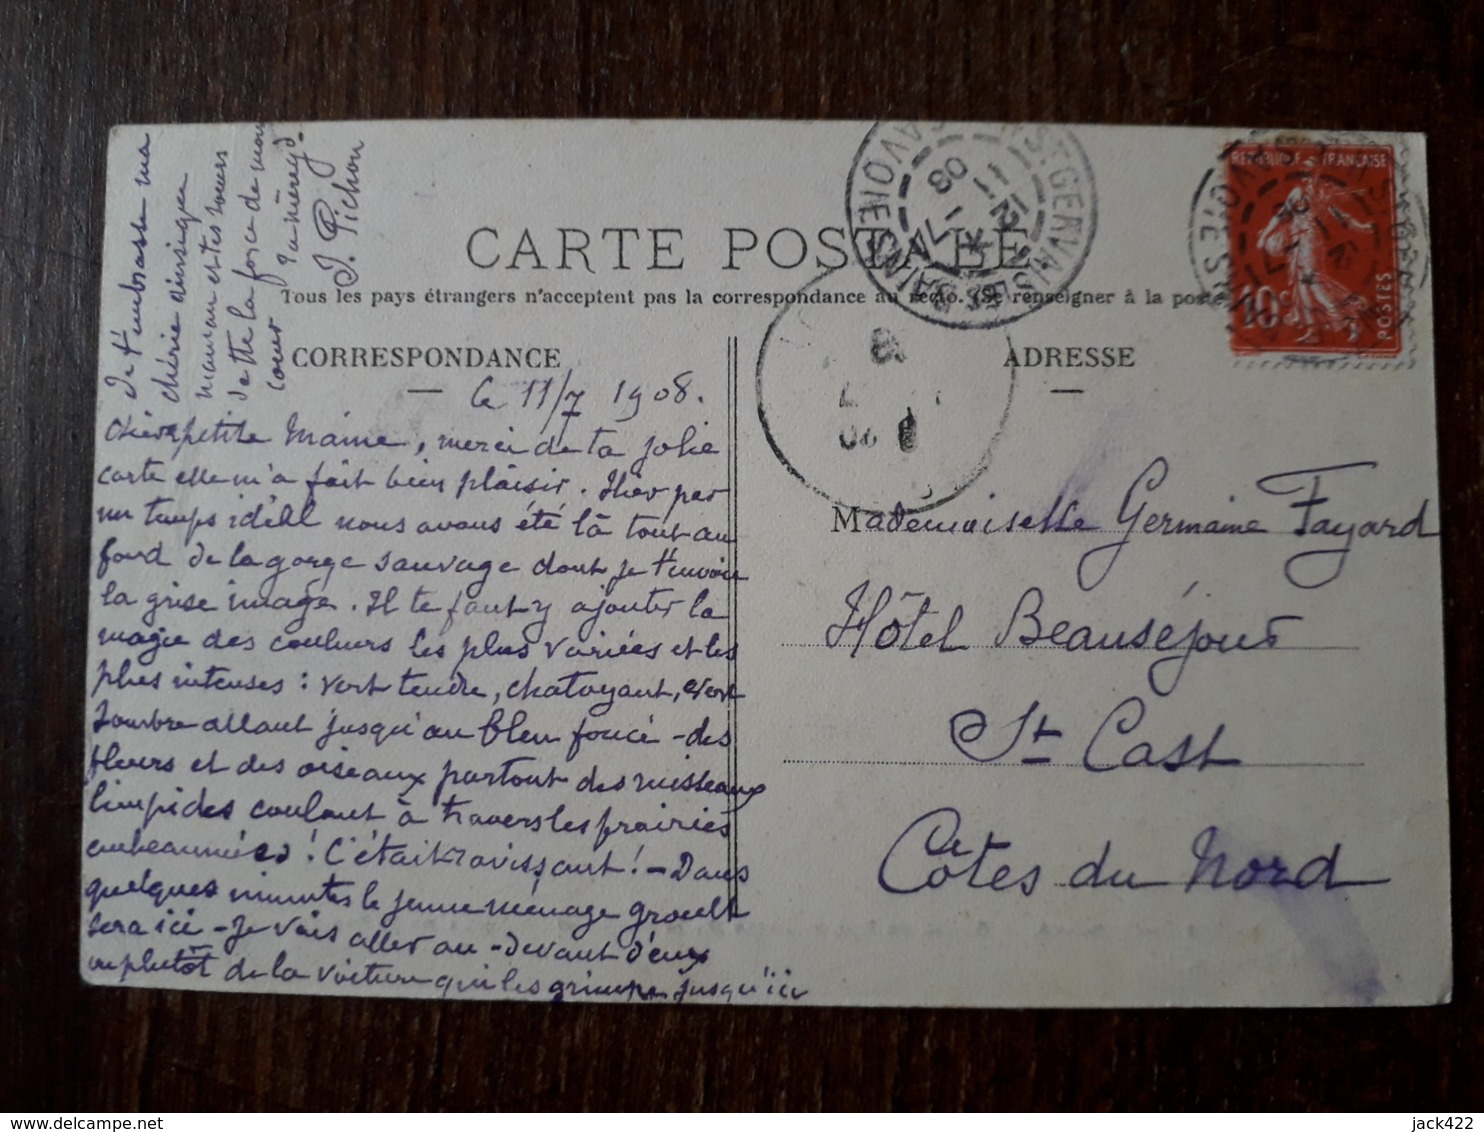 Je t'embrasse ma
chérie ainsi que
maman et tes sœurs
de tte la force de mon
cœur
ta mèregd.
J. Pichon
CARTE POSTALE
Tous les pays étrangers n'acceptent pas la correspondance au recto. (Se renseigner à la poste
CORRESPONDANCE
ADRESSE
Ce 11/7 1908.
Chère petite Maine, merci de ta jolie
carte elle m'a fait bien plaisir. Hier par
un temps idéal nous avons été là tout au
fond de la gorge sauvage dont je t'envoie
la grise image. Il te faut y ajouter la
magie des couleurs les plus variées et les
plus intenses : vert tendre, chatoyant, vert
sombre allant jusqu'au bleu foncé - des
fleurs et des oiseaux partout des ruisseaux
limpides coulant à travers les prairies
embaumées ! C'était ravissant ! - Dans
quelques minutes le jeune ménage Groult
sera ici - Je vais aller au-devant d'eux
ou plutôt de la voiture qui les grimpe jusqu'ici
Mademoiselle Germaine Fayard
Hôtel Beauséjour
St Cast
Côtes du Nord
ST GERVAIS-LES-BAINS
SAVOIE
12
11 - 7
08
REPUBLIQUE FRANÇAISE
10c
POSTES
delcampe.net
jack422